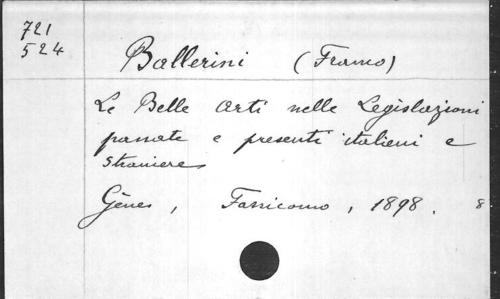 721
524
Ballerini (Franco)
Le Belle Arti nelle Legislazioni
passate e presenti italiani e
straniere
Gênes, Fassicomo, 1898. 8